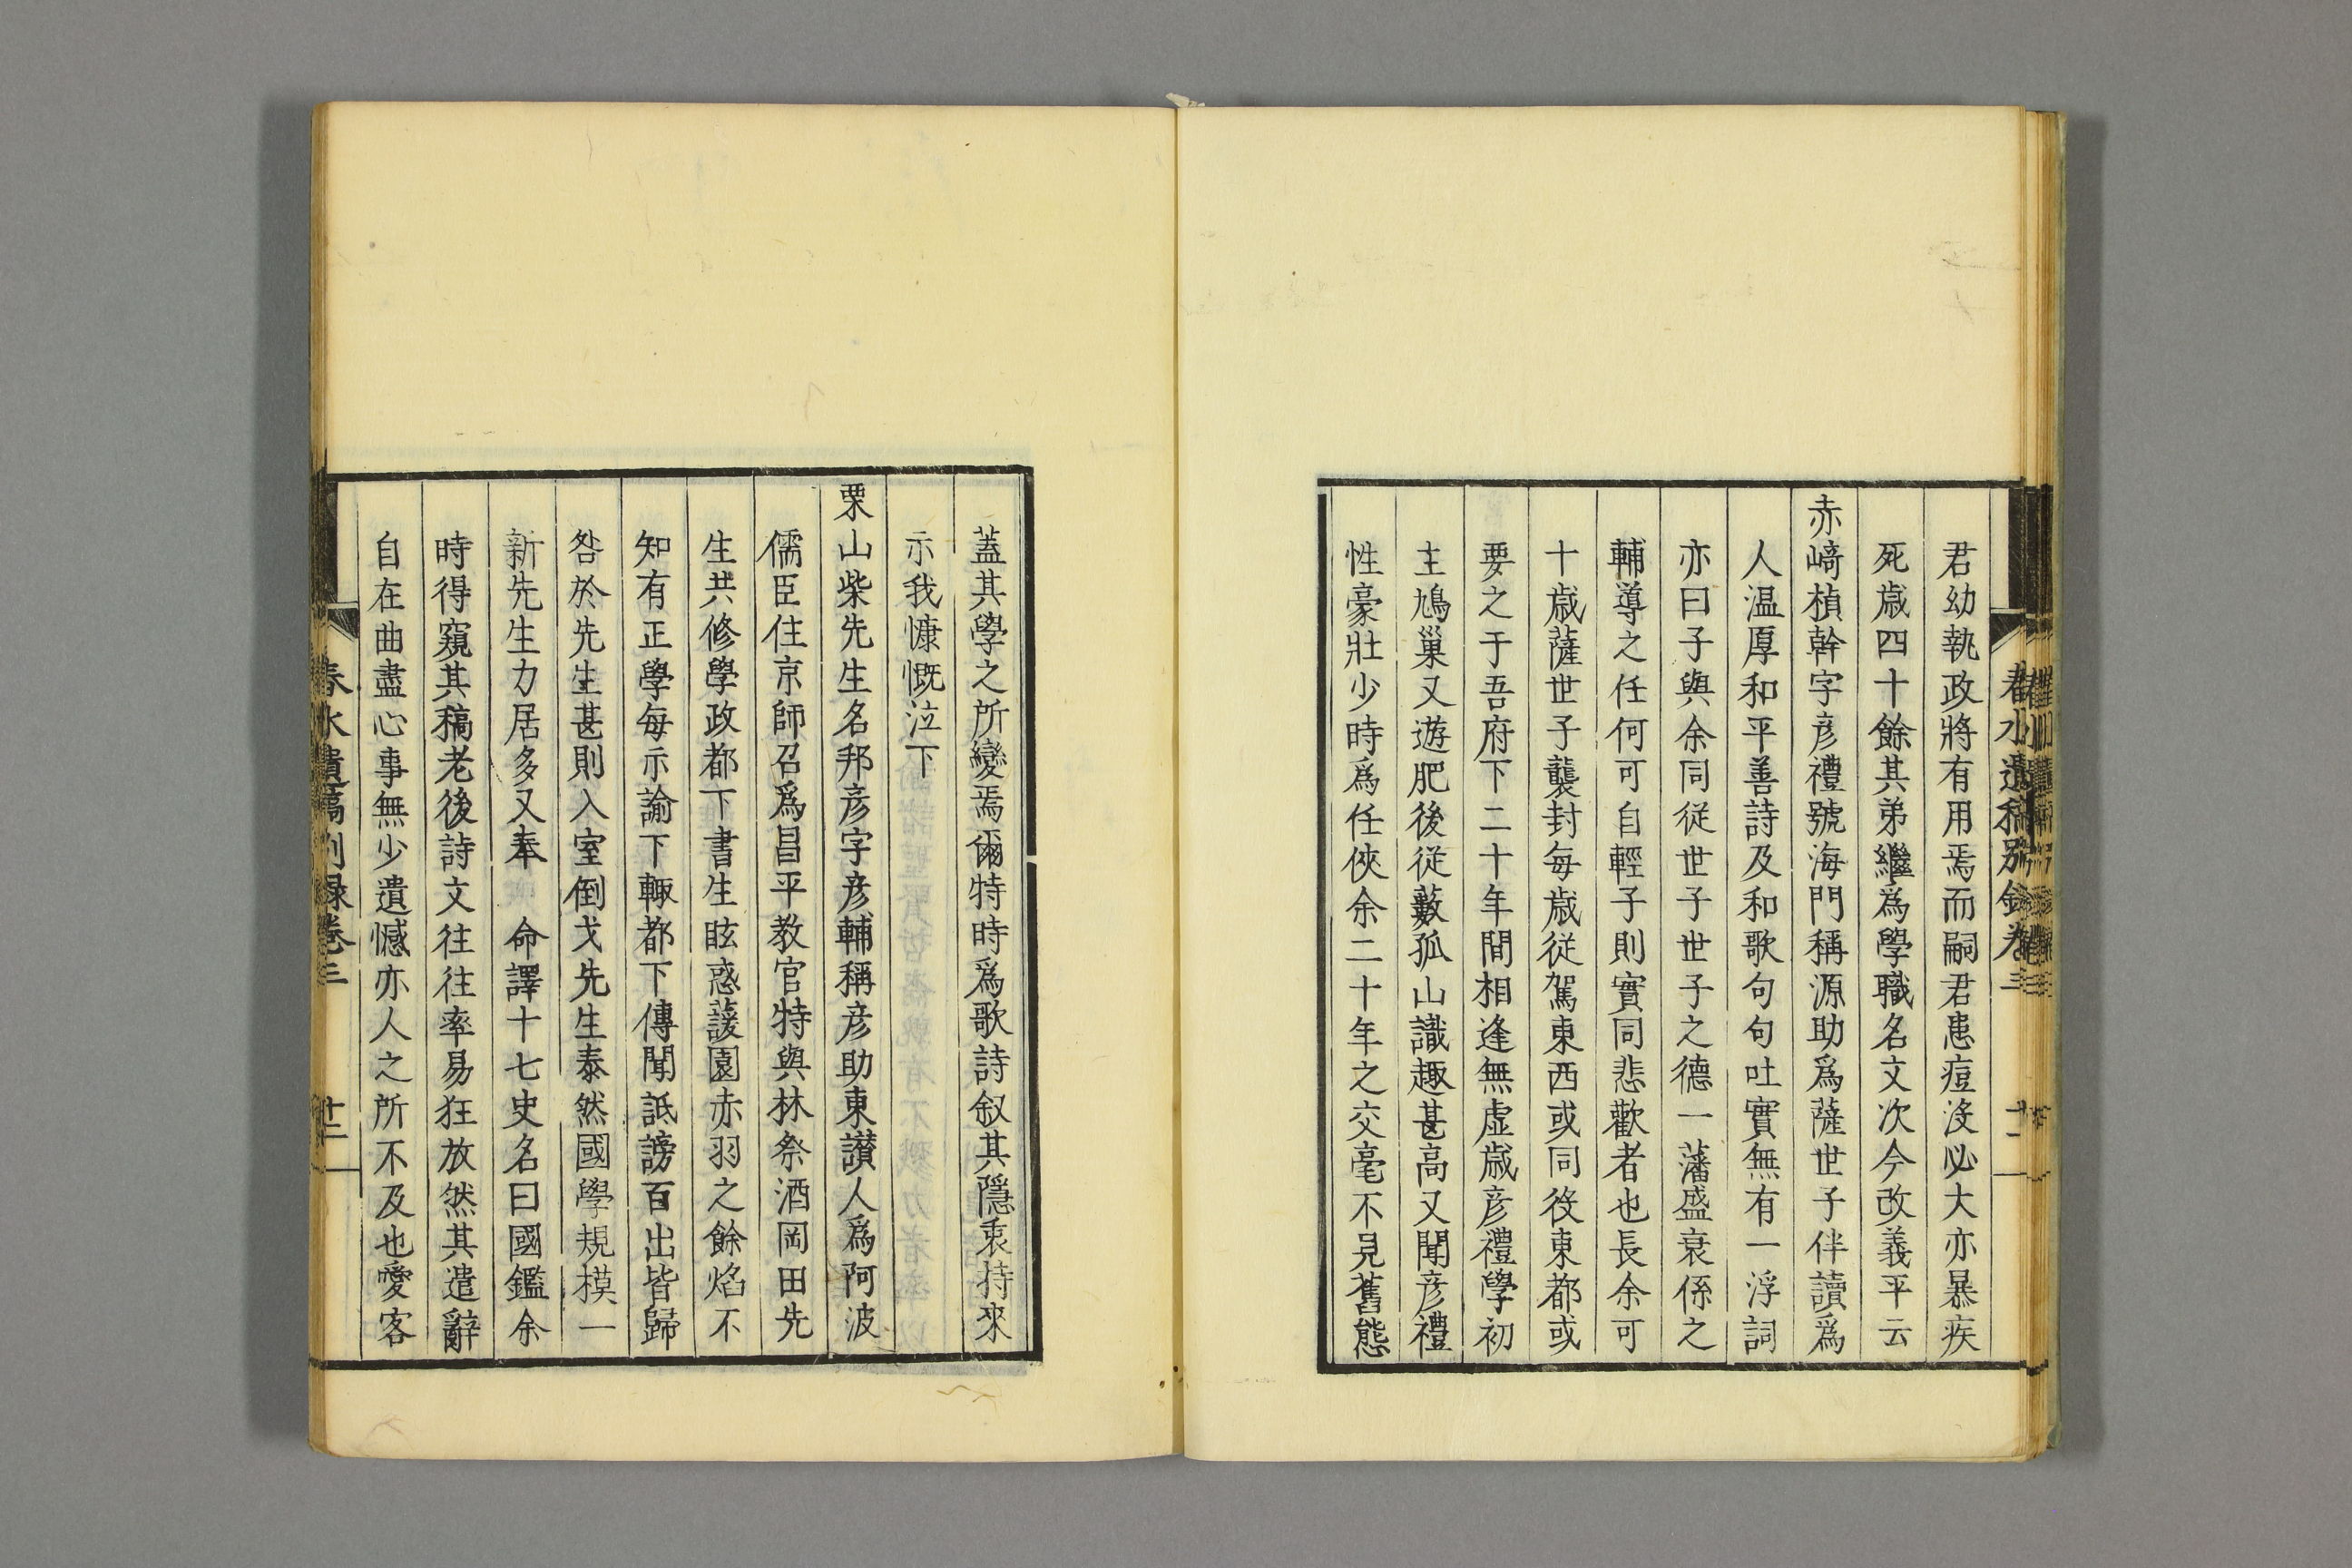 君幼執政將有用焉而嗣君患痘沒必大亦暴疾
死歳四十餘其弟繼爲學職名文次今改義平云
赤﨑楨幹字彦禮號海門稱源助爲薩世子伴讀爲
人温厚和平善詩及和歌句句吐實無有一浮詞
亦曰子與余同従世子世子之德一藩盛衰係之
輔導之任何可自輕子則實同悲歡者也長余可
十歳薩世子襲封毎歳従駕東西或同役東都或
要之于吾府下二十年間相逢無虚歳彦禮學初
主鳩巢又遊肥後従藪孤山識趣甚高又聞彦禮
性豪壯少時爲任俠余二十年之交毫不見舊態
蓋其學之所變焉爾特時爲歌詩叙其隱衷持來
示我慷慨泣下
栗山柴先生名邦彦字彦輔稱彦助東讃人爲阿波
儒臣住京師召爲昌平教官特與林祭酒岡田先
生共修學政都下書生眩惑蘐園赤羽之餘焰不
知有正學毎示諭下輙都下傳聞詆謗百出皆歸
咎於先生甚則入室倒戈先生泰然國學規模一
新先生力居多又奉 命譯十七史名曰國鑑余
時得窺其稿老後詩文往往率易狂放然其遣辭
自在曲盡心事無少遺憾亦人之所不及也愛客
春水遺稿別録卷三 十二